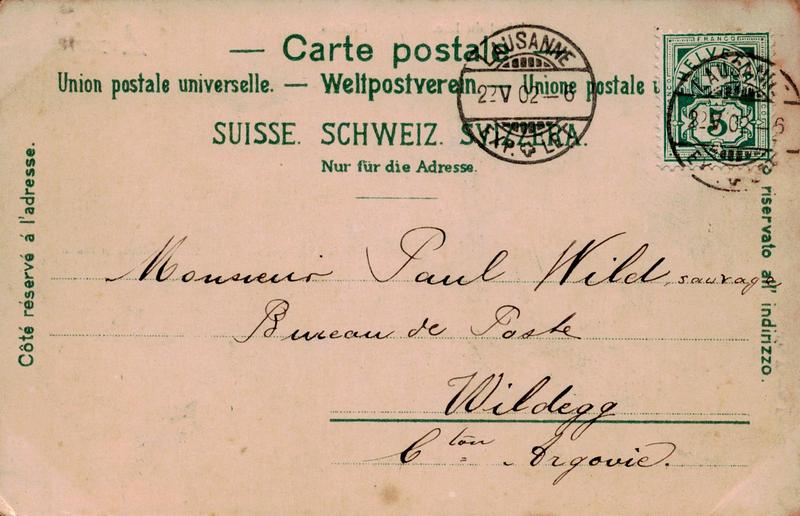 — Carte postale
Union postale universelle. — Weltpostverein. — Unione postale
SUISSE. SCHWEIZ. SVIZZERA.
Nur für die Adresse.
LAUSANNE
22 V 02 – 6
EXP. LET.
FRANCO
HELVETIA
5
Côté réservé à l'adresse.
riservato all' indirizzo.
Monsieur Paul Wild, sauvage
Bureau de Poste
Wildegg
Cton Argovie.